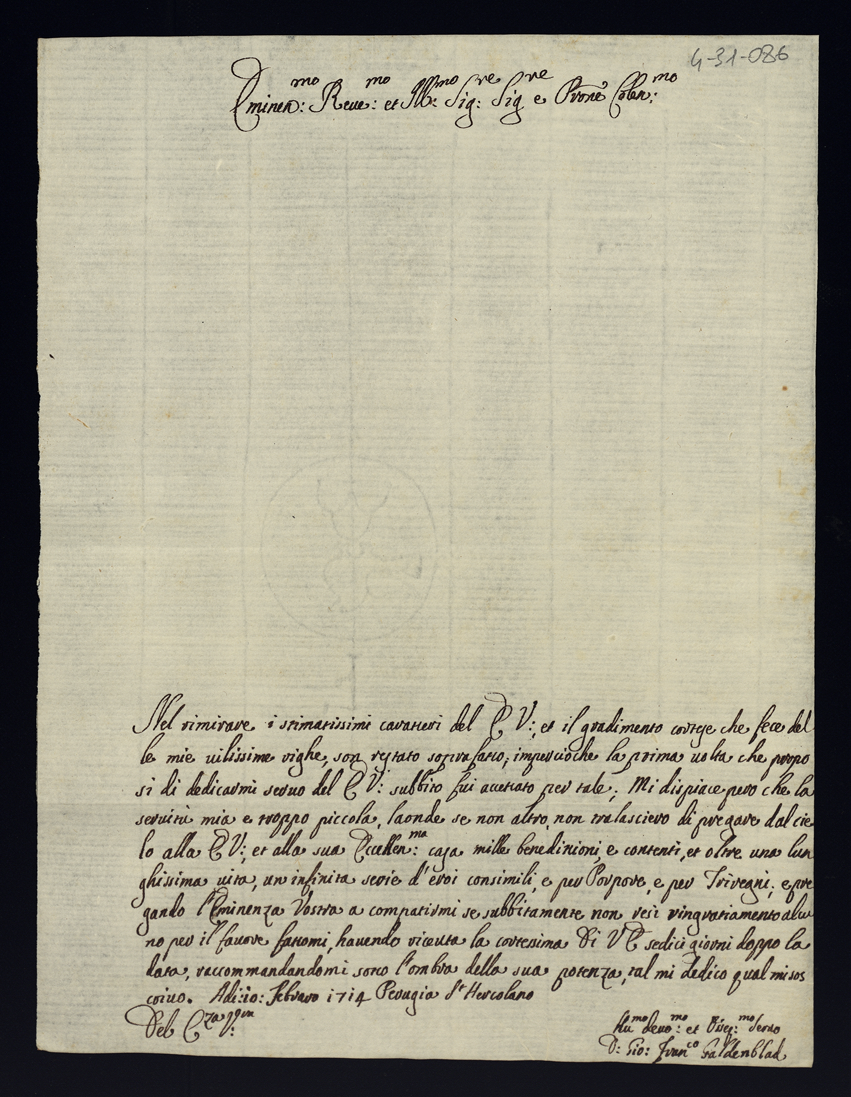 4-31-086
Eminen:mo Reue:mo et Ill:mo Sig:re Sigre e Prone Colen:mo
Nel rimirare i stimatissimi caratteri del E V:, et il gradimento cortese che fece del
le mie uilissime righe, son restato soprafatto; impercioche la prima uolta che propo
si di dedicarmi seruo del E V: subbito fui accettato per tale; Mi dispiace pero che la
seruitù mia e troppo piccola, laonde se non altro, non tralasciero di pregare dal cie
lo alla E V:, et alla sua Eccellen:ma casa mille benedinioni, e contenti, et oltre una lun
ghissima uita, un infinita serie d'eroi consimili, e per Porpore, e per Triregni; e pre
gando l'Eminenza Vostra a compatirmi se subbitamente non resi ringratiamento alcu
no per il fauore fattomi, hauendo riceuta la cortesima di V E sedici giorni doppo la
data, raccommandandomi sotto l'ombra della sua potenza, tal mi dedico qual mi sos
criuo. Adi: 10: Febraro 1714 Perugia St Hercolano
Del E:za V:
Hu:mo deuo:mo et Osseq:mo seruo
D: Gio: Franco Galdenblad